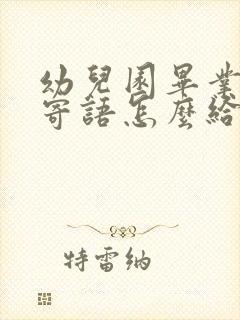 幼兒園畢業
寄語怎麼給
特雷納